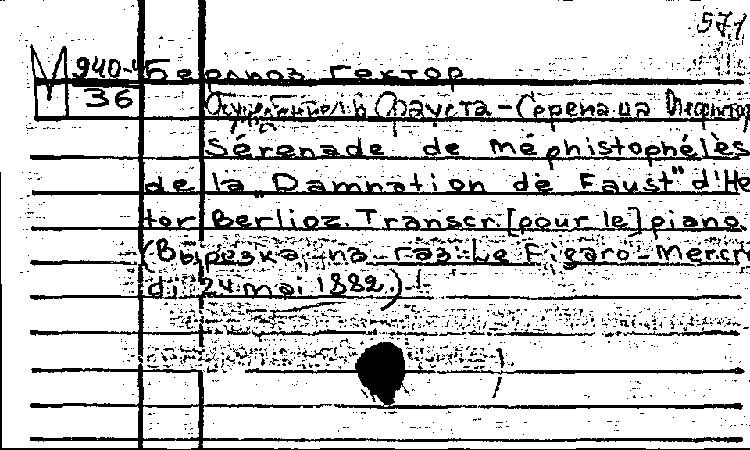 571
М 940-4 Берлиоз Гектор
36 Фауста - Серенада
Sérenade de méphistophélès
de la „Damnation de Faust" d'He
tor Berlioz. Transcr. [pour le] piano.
(Вырезка из газ. Le Figaro - Mercre
di 24 mai 1882.)